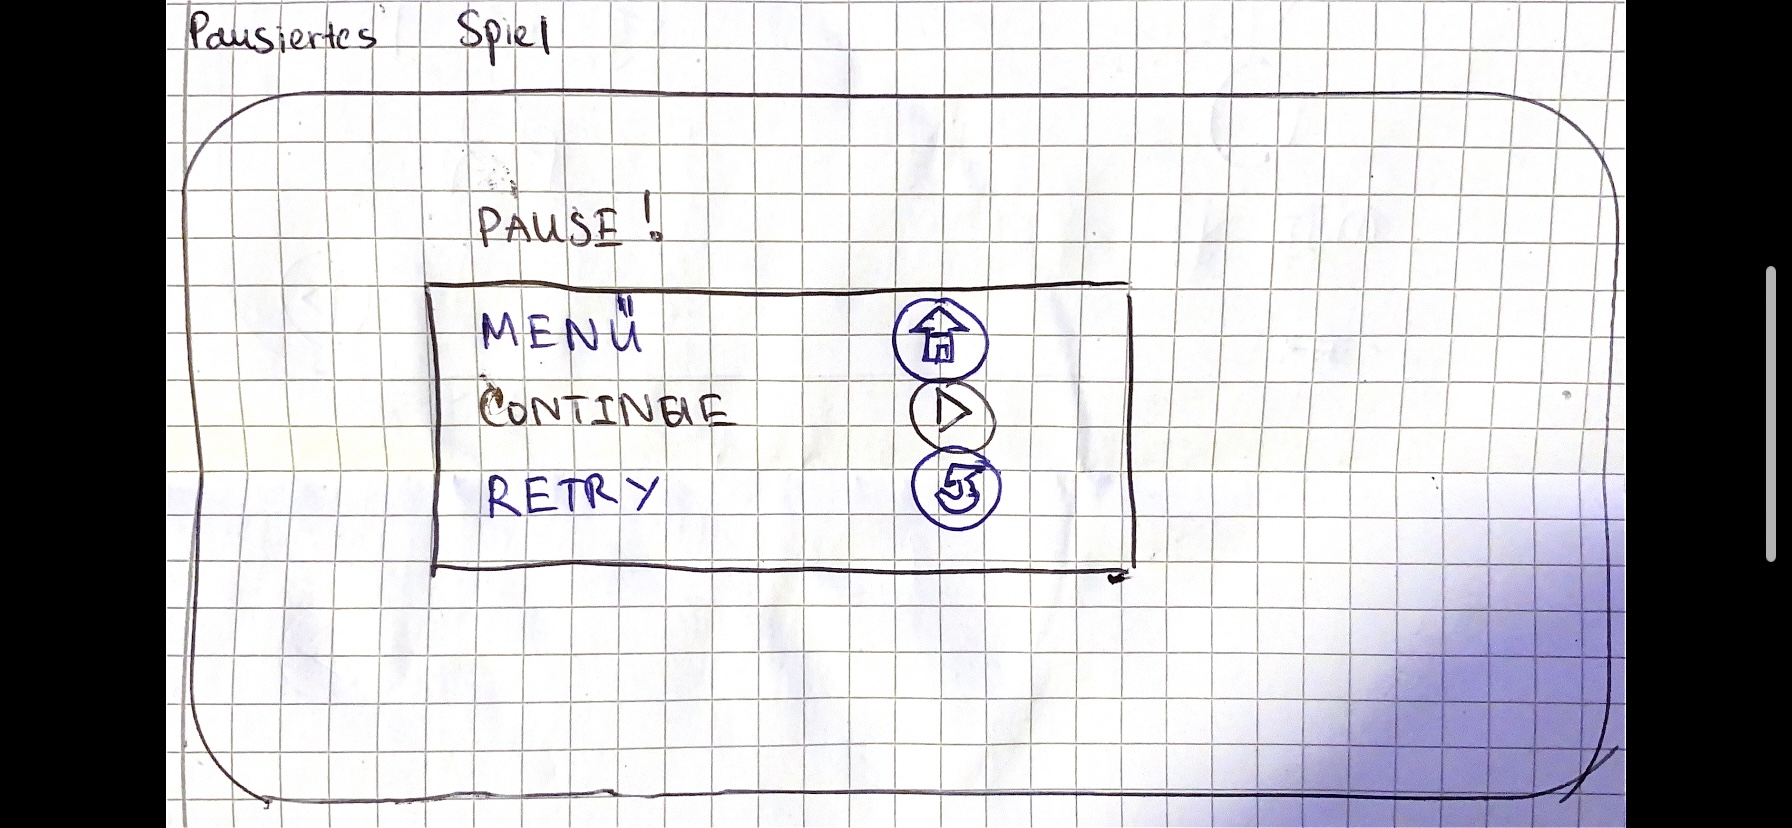 Pausiertes Spiel
PAUSE!
MENÜ
CONTINUE
RETRY